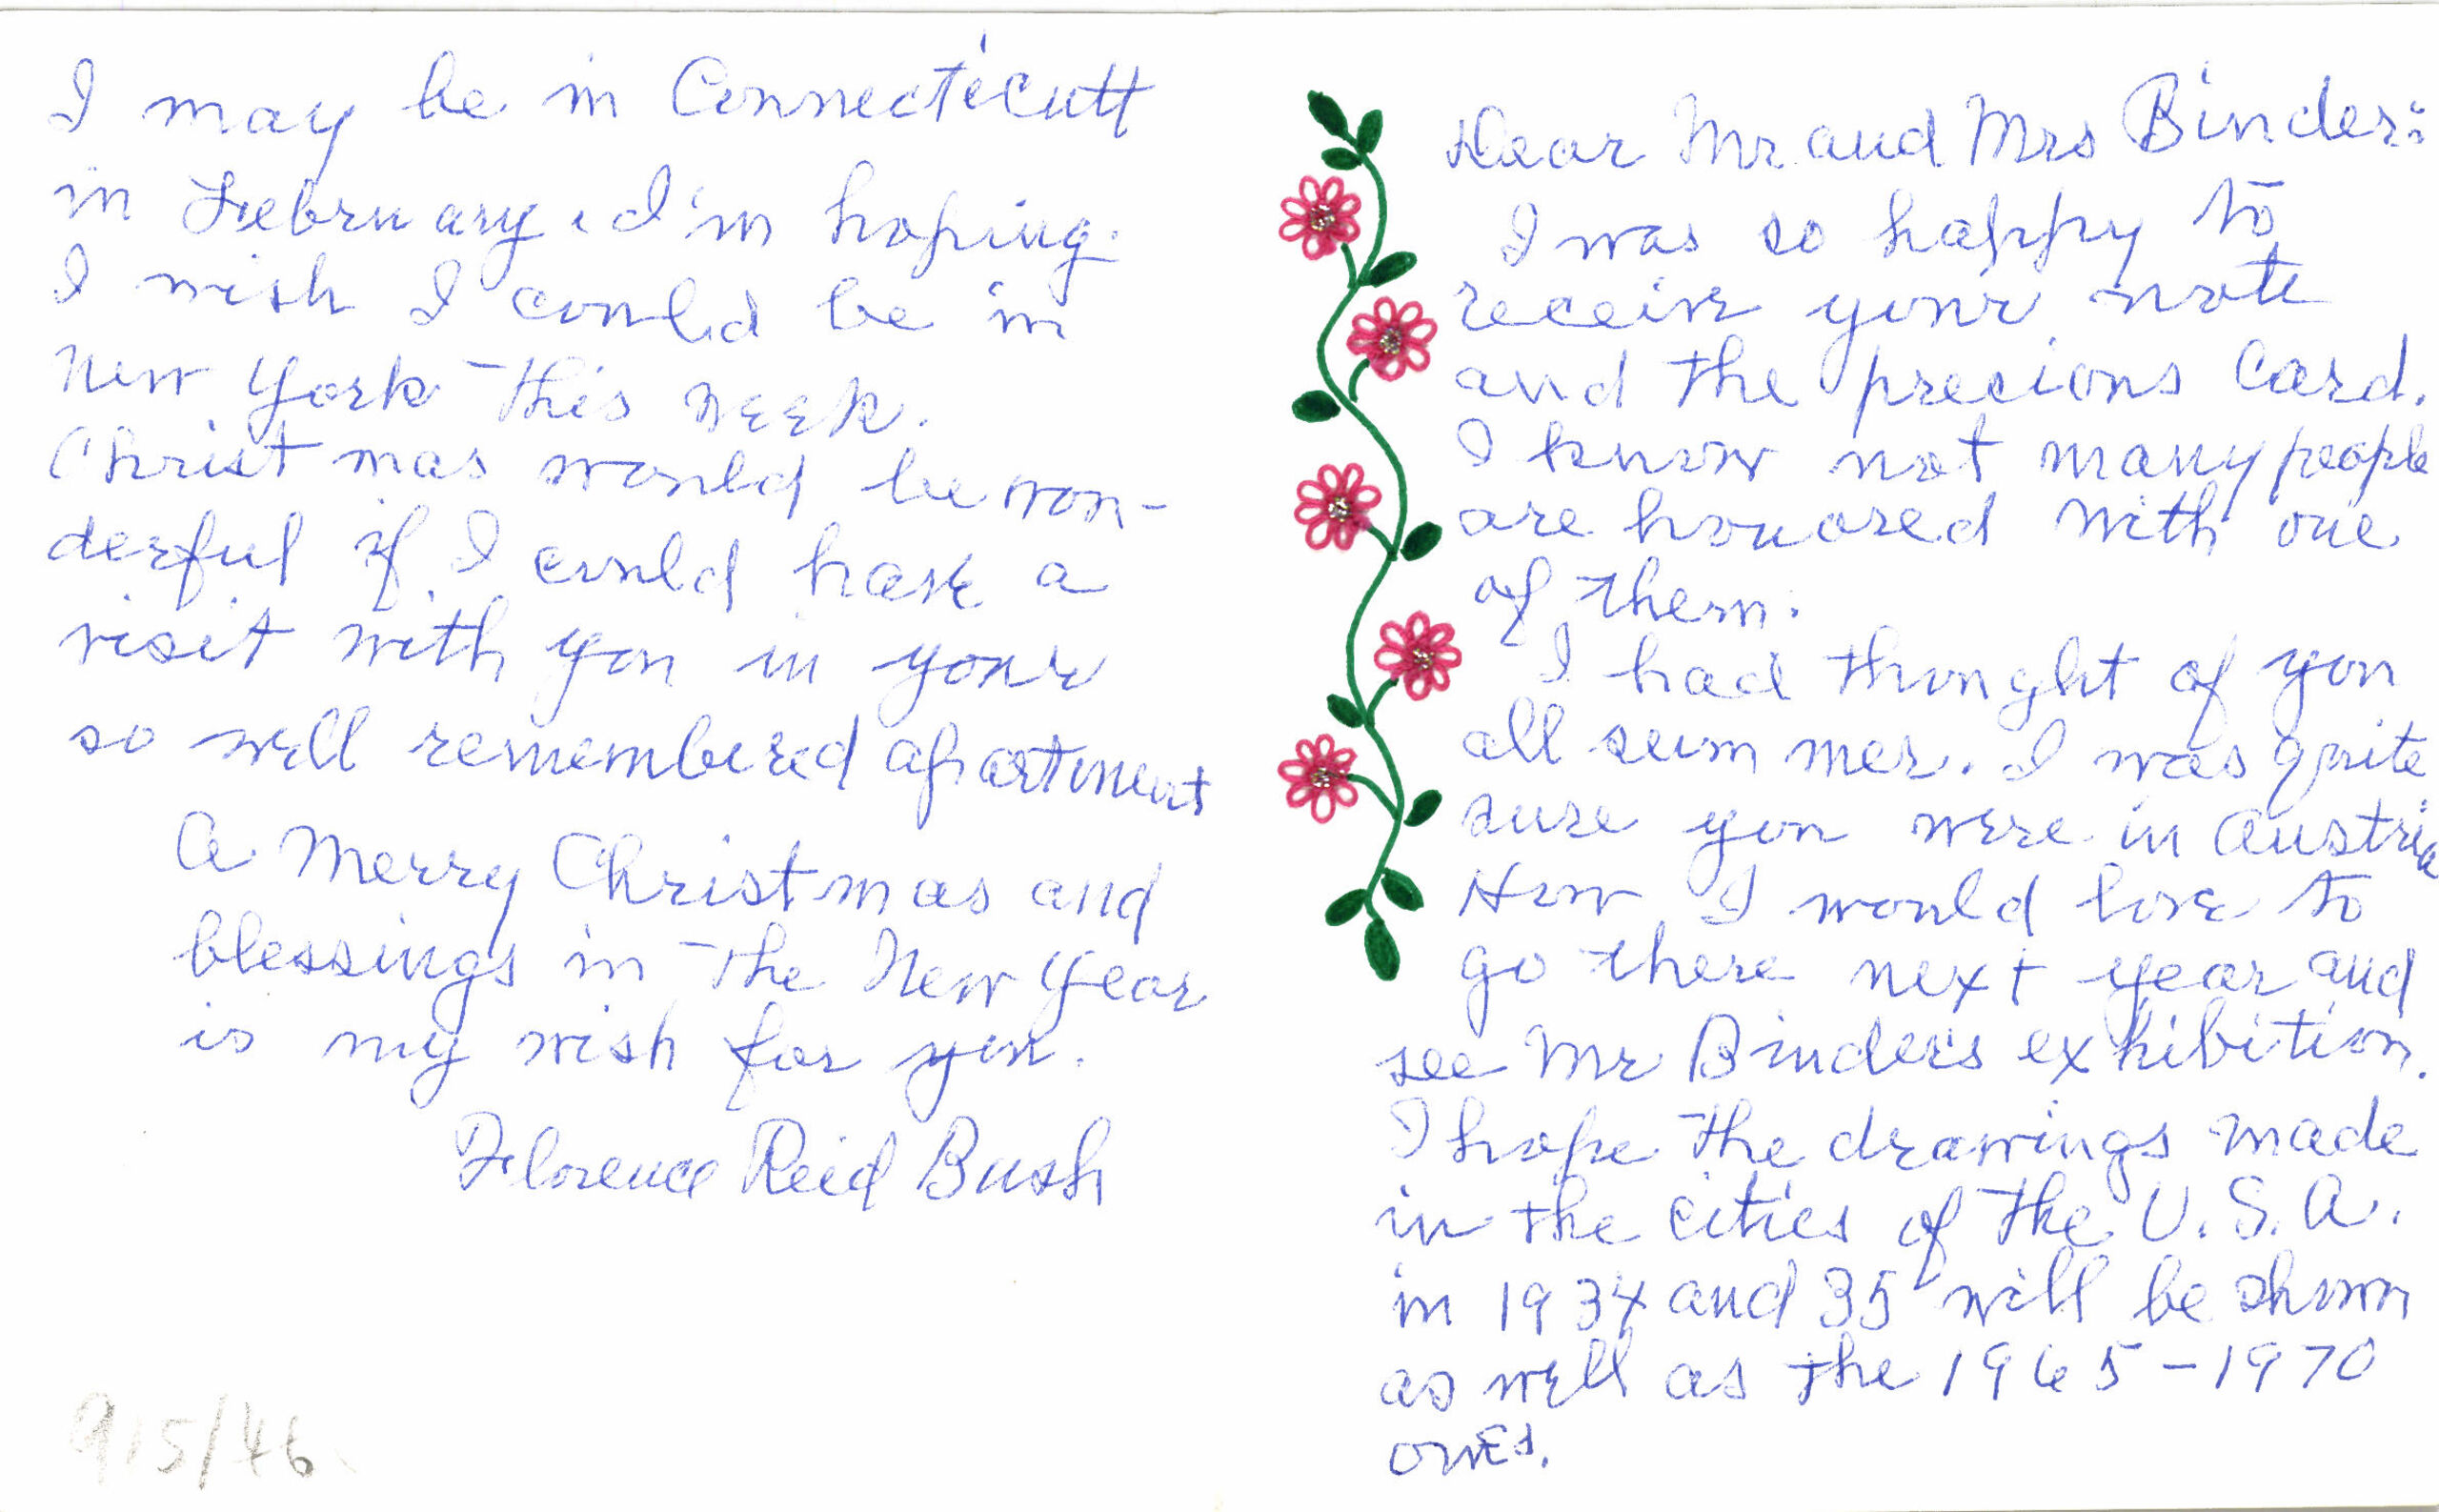 Dear Mr. and Mrs Binder:
I was so happy to
receive your note
and the precious card.
I know not many people
are honored with one
of them.
I had thought of you
all summer. I was quite
sure you were in Austria
How I would love to
go there next year and
see Mr Binders exhibition.
I hope the drawings made
in the cities of the U.S.A.
in 1934 and 35 will be shown
as well as the 1965-1970
ones.
I may be in Connecticutt
in February. I'm hoping.
I wish I could be in
New York this week.
Christmas would be won-
derful if I could have a
visit with you in your
so well remembered apartment
A Merry Christmas and
blessings in the New Year
is my wish for you.
Florence Reid Bush
915/46